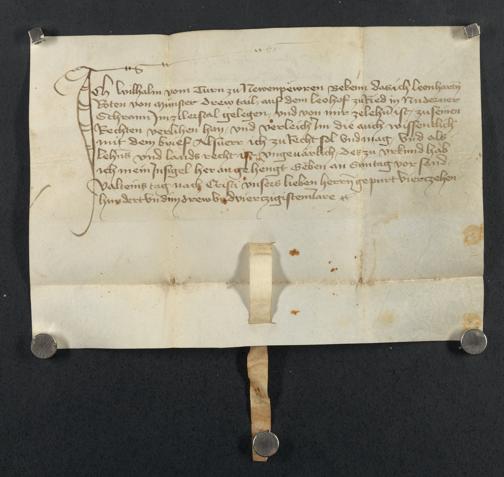 Ich Wilhalm vom Turn zu Newenpewren Beken das ich Leonharten
Poten von Münster drew tail auf dem leohof zu Ried in
Schrann im gelegen und von mir zelehen ist zu seinen
Rechten verlihen han und verleich Im die auch wissenlich
mit dem brief Alsuerr ich zu Recht sol und mag und als
lehens und lands recht ist ungeuärlich des zu urkund hab
ich mein Insigel her an gehengt Geben an Suntag vor sand
Valteins tag nach Cristi unsers lieben herrn gepurt vierczehen
hundert und in drew und vierczigistem Jare